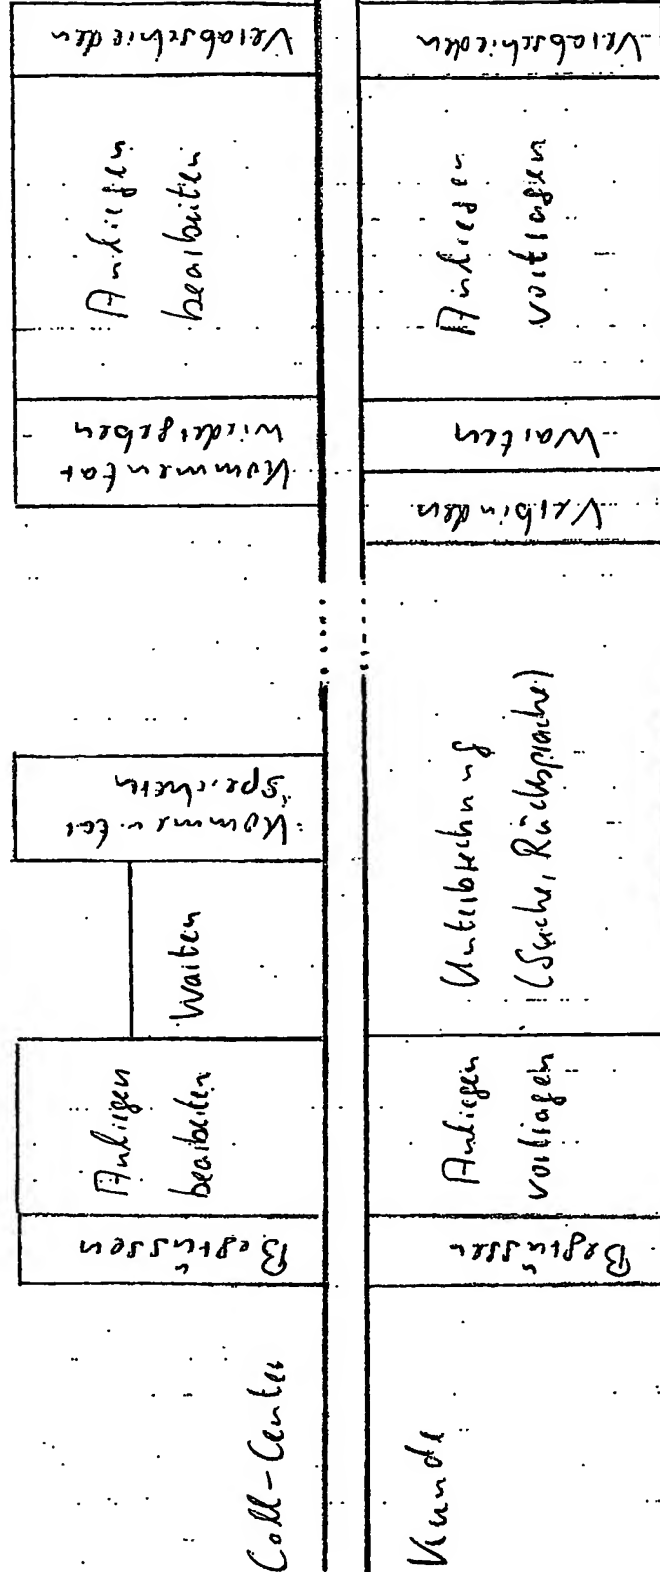 Call-Center
Begrüssen
Anliegen
bearbeiten
Warten
Kommentar
speichern
Kommentar
wiedergeben
Anliegen
bearbeiten
Verabschieden
Kunde
Begrüssen
Anliegen
vortragen
Unterbrechung
(Suche, Rücksprache)
Verbinden
Warten
Anliegen
vortragen
Verabschieden